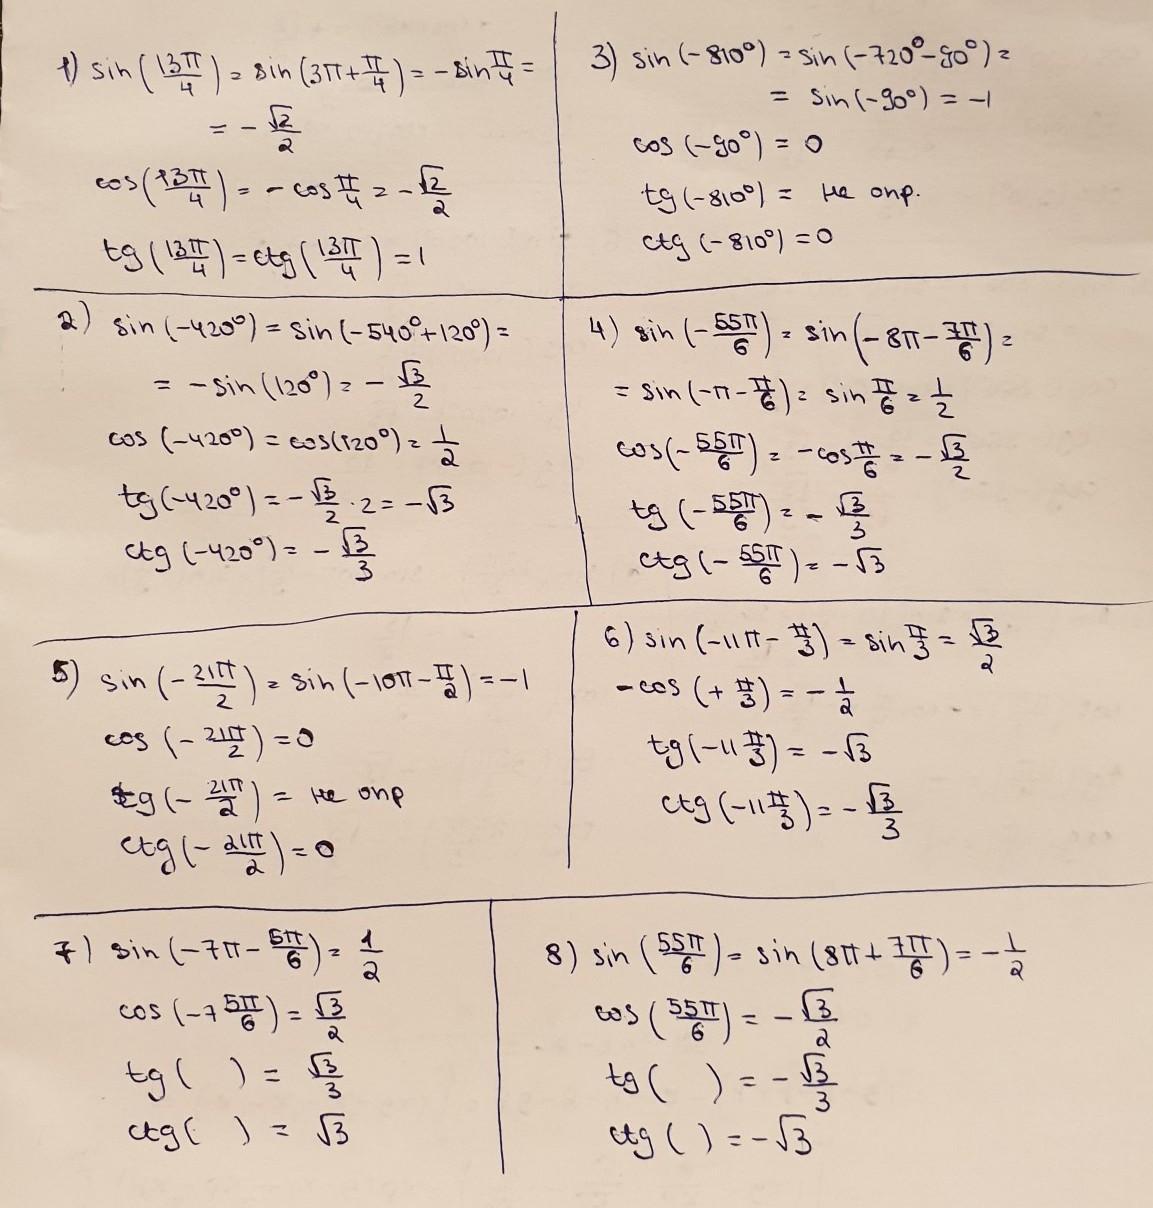 1) sin(13π/4) = sin(3π+π/4) = -sin π/4 =
= -√2/2
cos(13π/4) = -cos π/4 = -√2/2
tg(13π/4) = ctg(13π/4) = 1
2) sin(-420°) = sin(-540°+120°) =
= -sin(120°) = -√3/2
cos(-420°) = cos(120°) = 1/2
tg(-420°) = -√3/2 · 2 = -√3
ctg(-420°) = -√3/3
3) sin(-810°) = sin(-720°-90°) =
= sin(-90°) = -1
cos(-90°) = 0
tg(-810°) = не опр.
ctg(-810°) = 0
4) sin(-55π/6) = sin(-8π-7π/6) =
= sin(-π-π/6) = sin π/6 = 1/2
cos(-55π/6) = -cos π/6 = -√3/2
tg(-55π/6) = -√3/3
ctg(-55π/6) = -√3
5) sin(-21π/2) = sin(-10π-π/2) = -1
cos(-21π/2) = 0
tg(-21π/2) = не опр
ctg(-21π/2) = 0
6) sin(-11π-π/3) = sin π/3 = √3/2
-cos(+π/3) = -1/2
tg(-11 π/3) = -√3
ctg(-11 π/3) = -√3/3
7) sin(-7π-5π/6) = 1/2
cos(-7 5π/6) = √3/2
tg( ) = √3/3
ctg( ) = √3
8) sin(55π/6) = sin(8π+7π/6) = -1/2
cos(55π/6) = -√3/2
tg( ) = -√3/3
ctg( ) = -√3